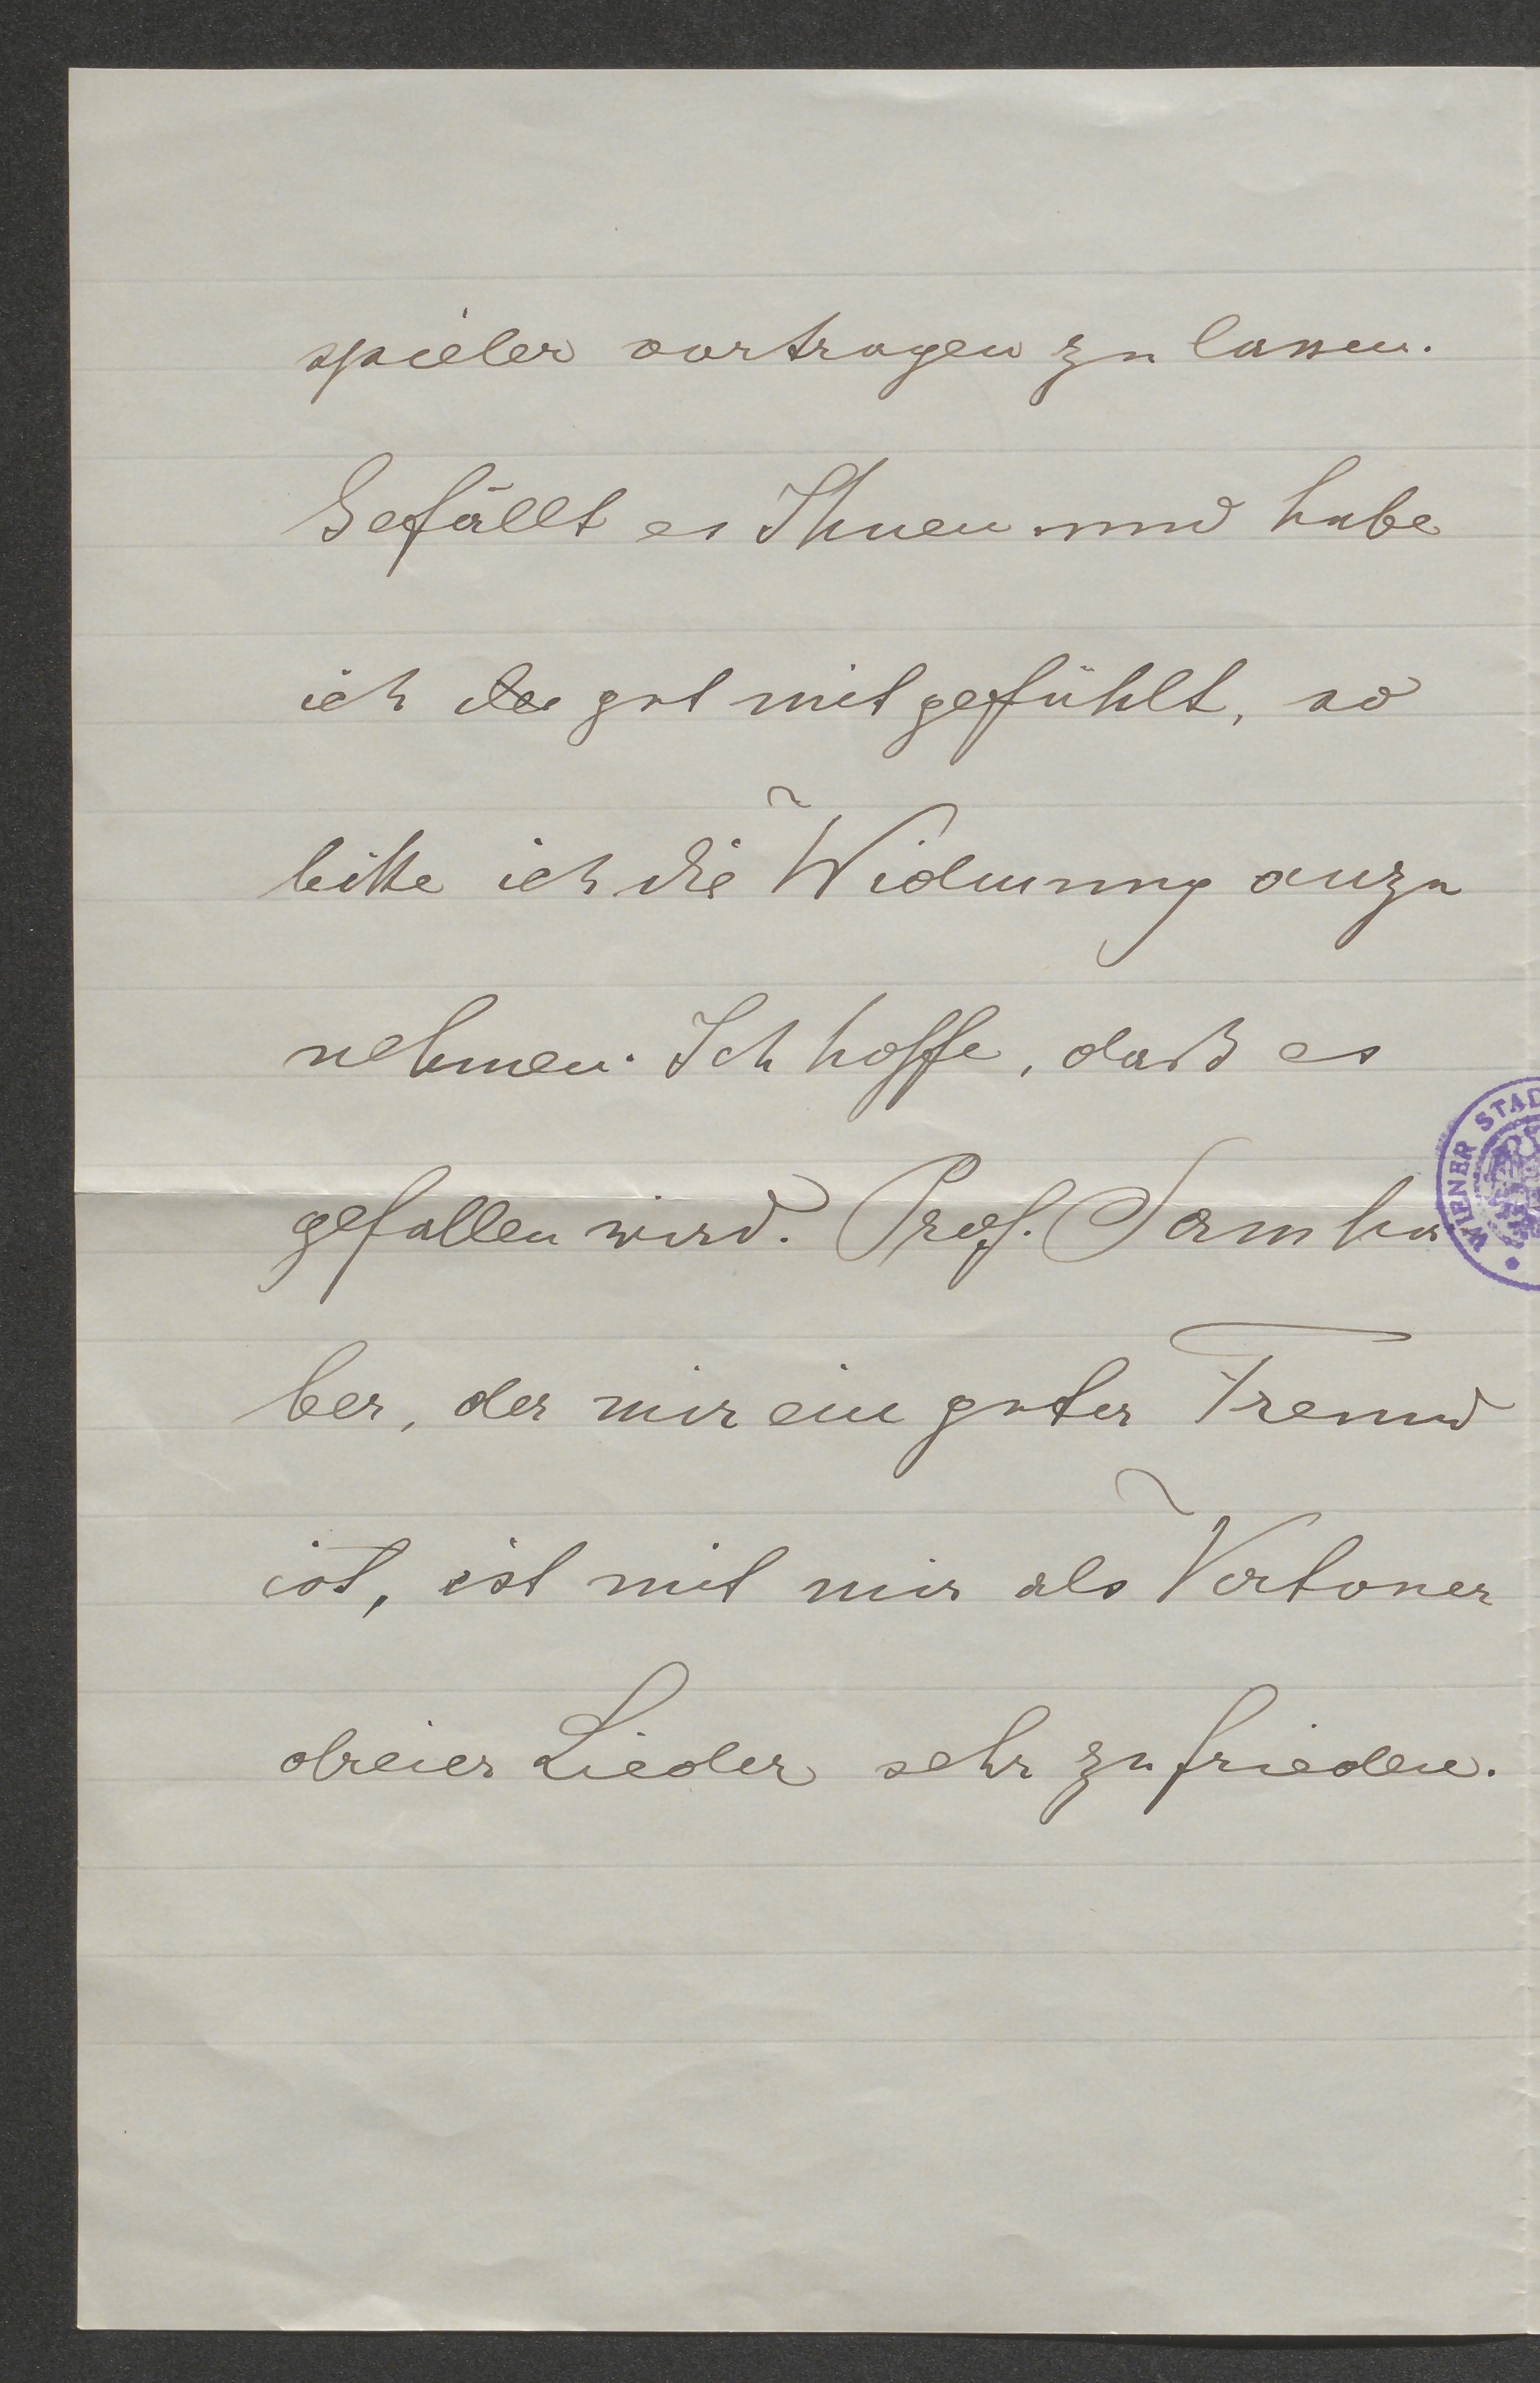 spieler vortragen zu lassen.
Gefällt es Ihnen und habe
ich gut mitgefühlt, so
bitte ich die Widmung anzu
nehmen. Ich hoffe, daß es
gefallen wird. Prof. Samha
ber, der mir ein guter Freund
ist, ist mit mir als Vertoner
dreier Lieder sehr zufrieden.
WIENER STAD